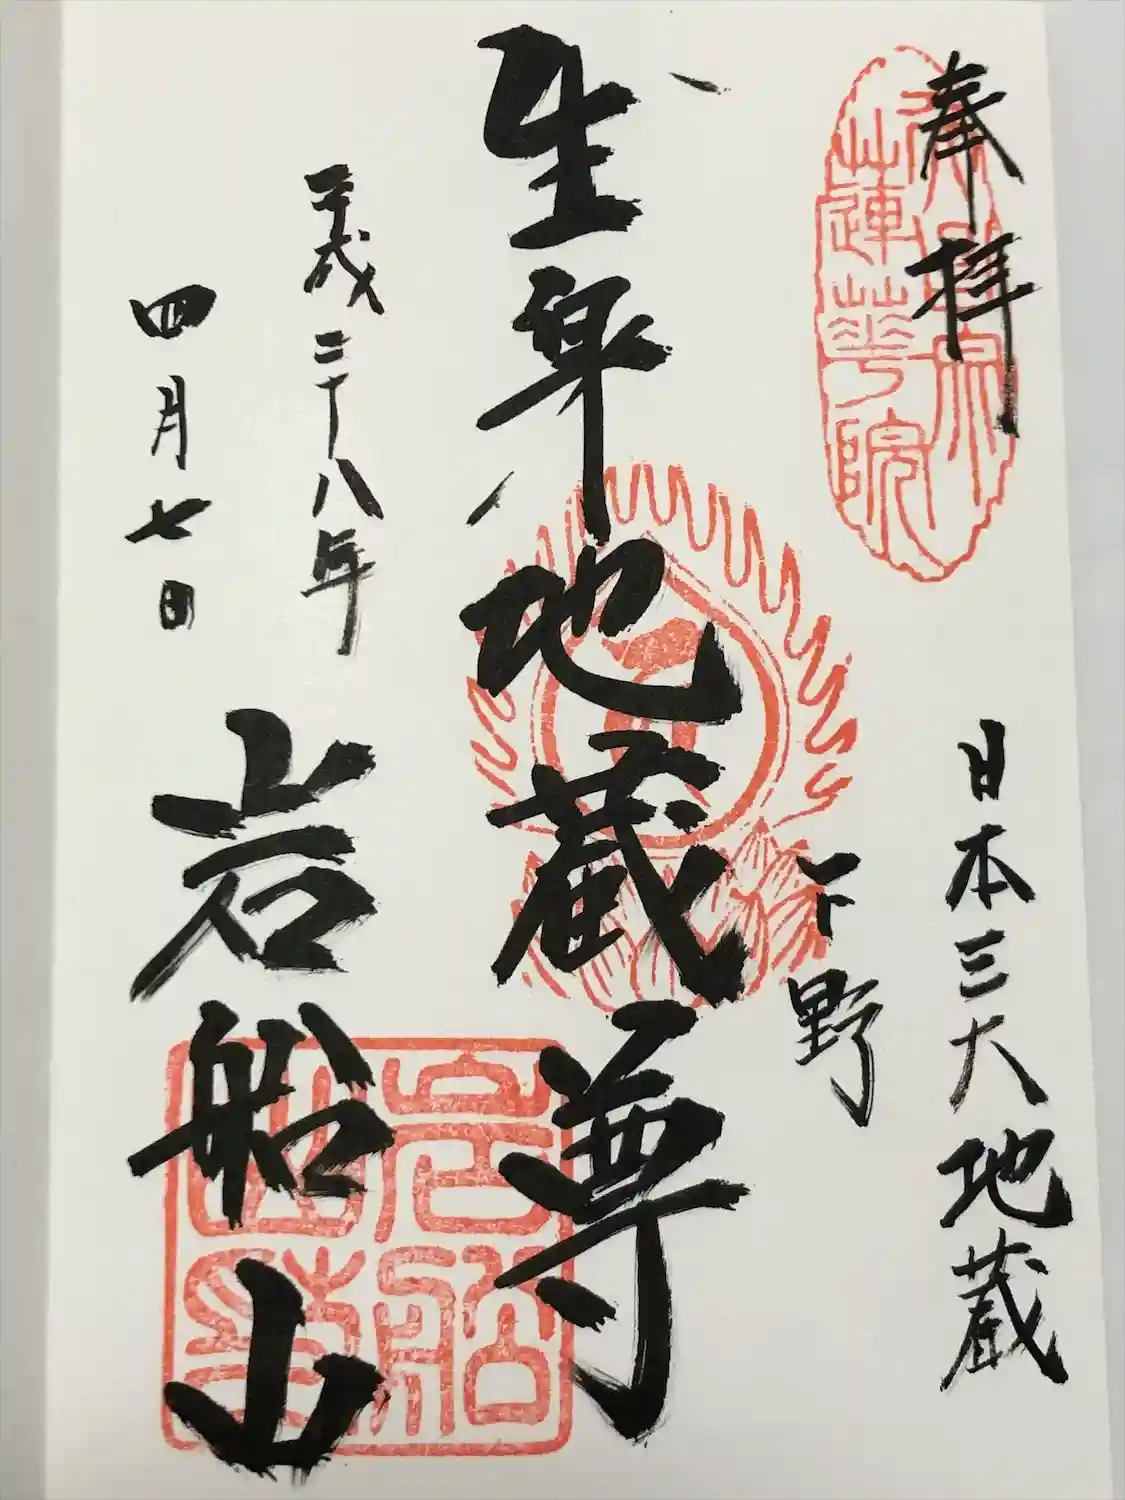 奉拝
蓮華院
日本三大地蔵
下野
生身地蔵尊
平成二十八年
四月七日
岩船山